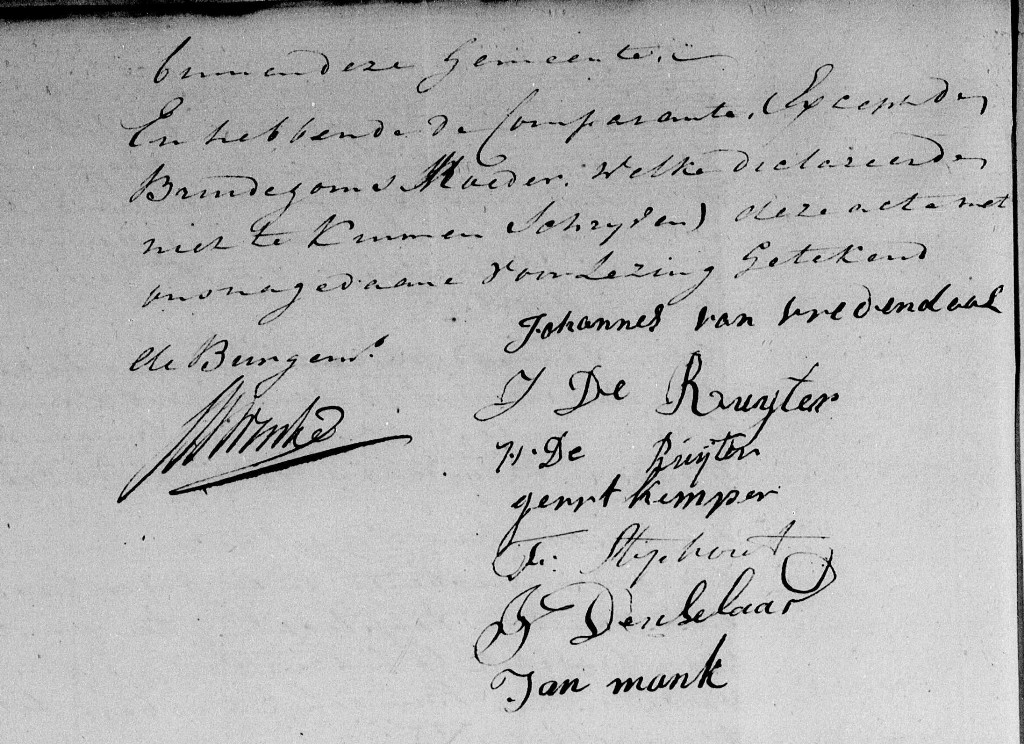 binnen deze Gemeente.
En hebbende de Comparante, (Excepte de
Bruidegoms Moeder, welke declareerde
niet te Kunnen Schryven) deze acte met
ons na gedaane Voorlezing Getekend
Johannes van vredendaal
de Burgemr.
J De Ruyter
H. De Ruijter
gerrt kemper
F. Stiphout
J Denkelaar
Jan monk